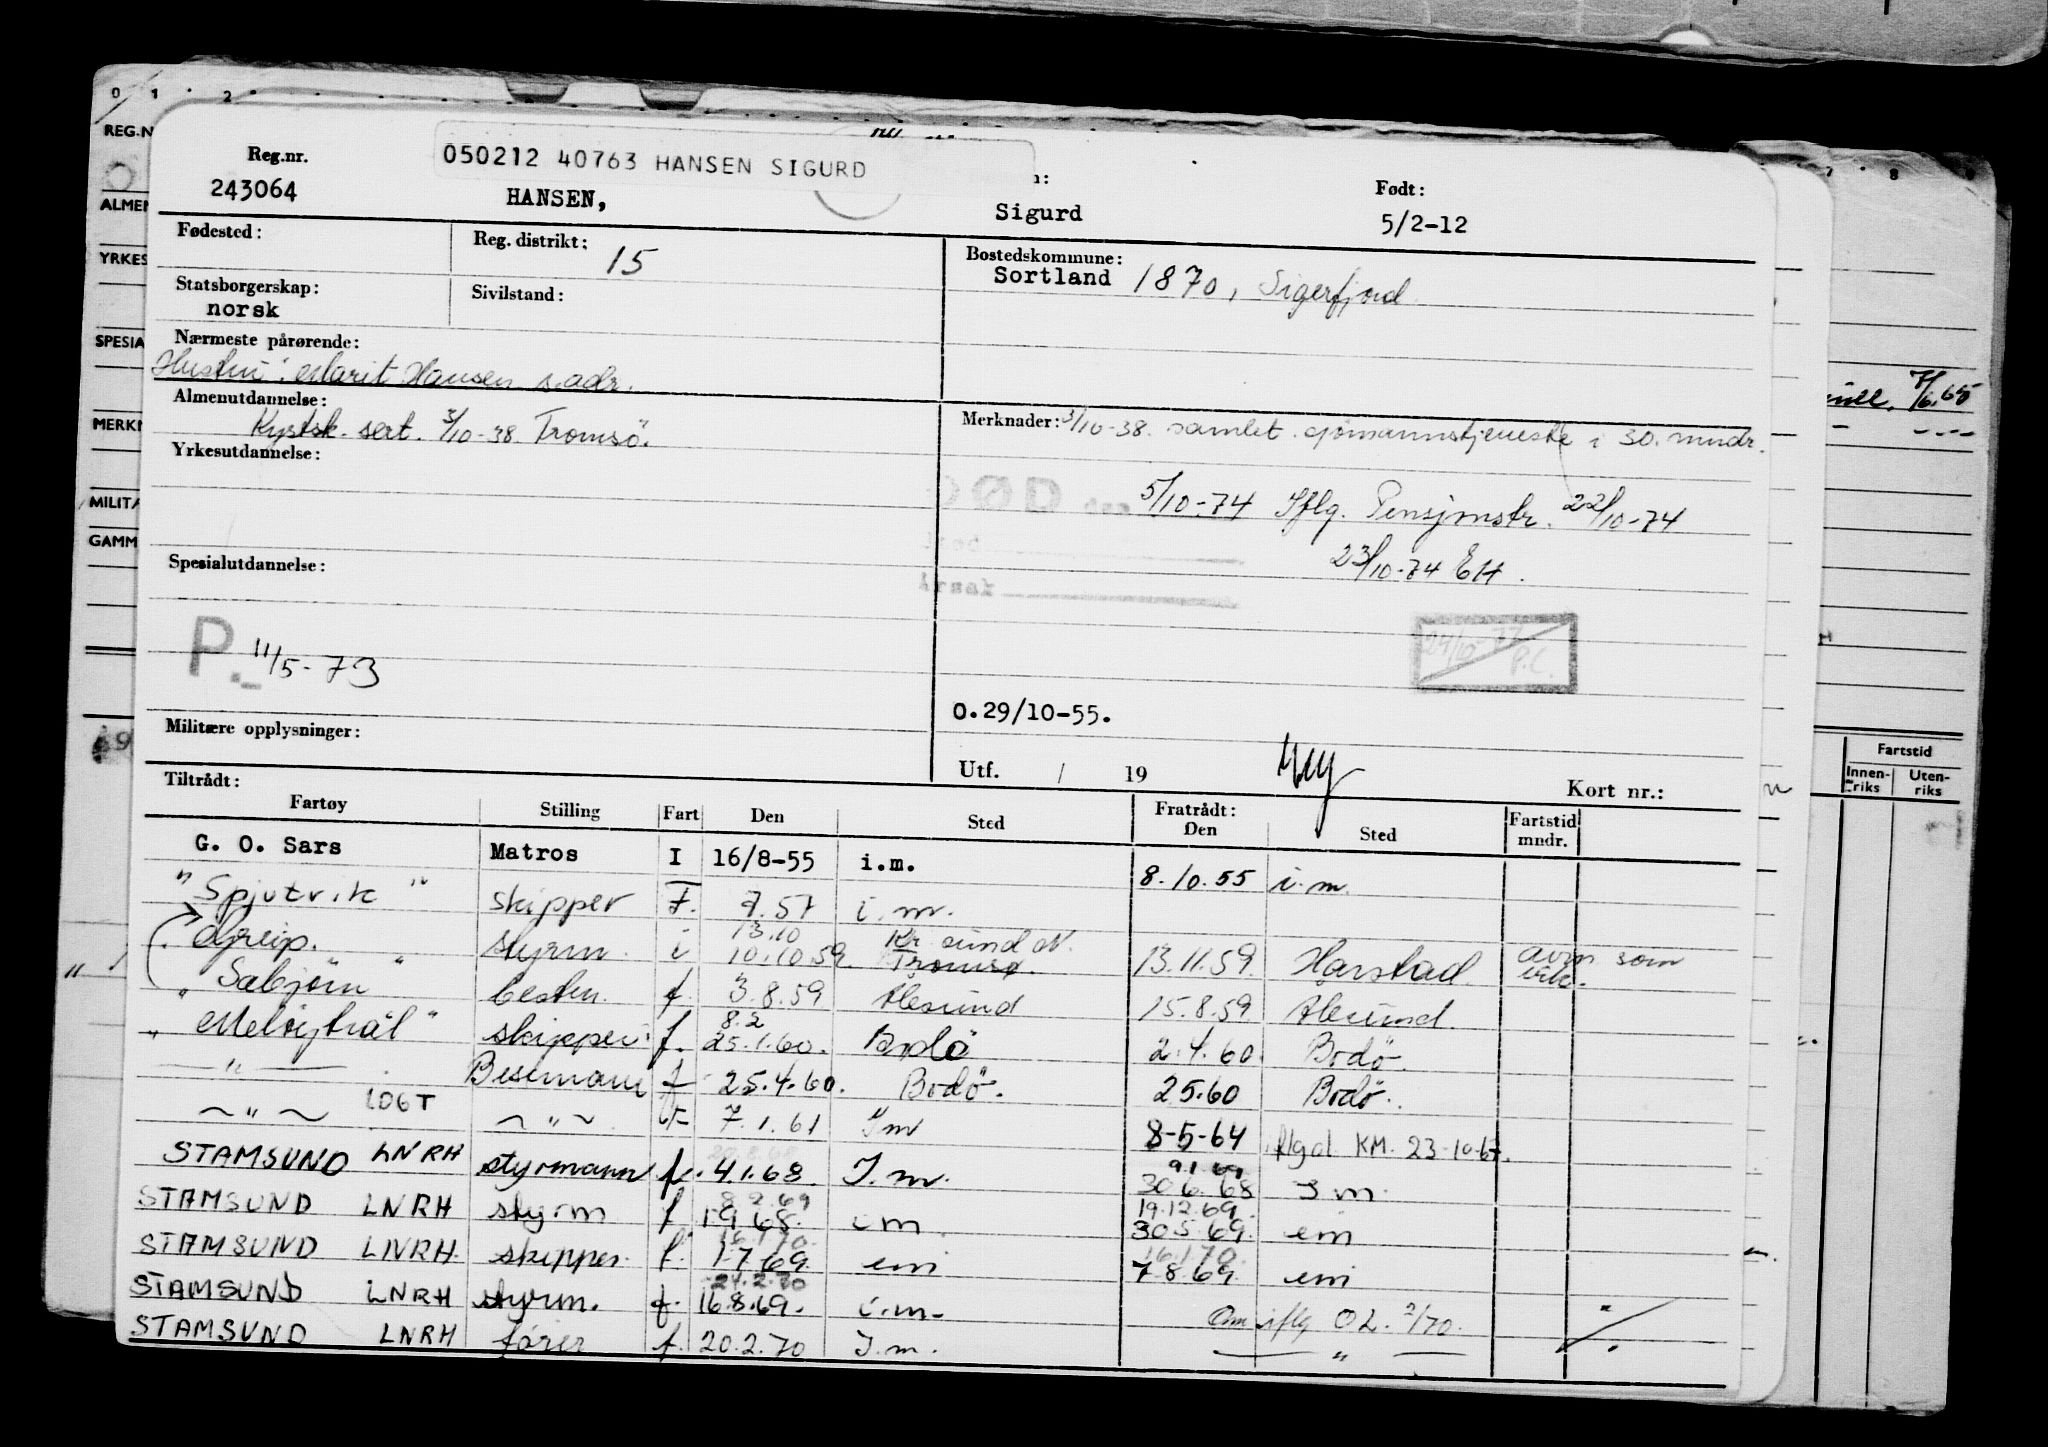 0 1 2
REG.N
Reg.nr.
050212 40763 HANSEN SIGURD
Født:
243064
HANSEN,
Sigurd
5/2-12
ALMEN
Fødested:
Reg. distrikt: 15
Bostedskommune:
Sortland 1870, Sigerfjord
YRKES
Statsborgerskap:
norsk
Sivilstand:
SPESIA
Nærmeste pårørende:
Hustru: Marit Hansen s. adr.
7/6.65
Almenutdannelse:
Kystsk. sert. 3/10-38. Tromsö.
MERKN
Merknader: 3/10-38. samlet sjömannstjeneste i 30. mndr.
Yrkesutdannelse:
MILITÆ
DØD 5/10-74 Iflg. Pensjonstr. 22/10-74
23/10-74 EH.
GAMM
Årsak
Spesialutdannelse:
P. 11/5-73
24/10-77
P.C.
O.29/10-55.
Militære opplysninger:
Utf. / 19
Kort nr.:
Fartstid
Innen-riks
Uten-riks
Tiltrådt:
Fartøy Stilling Fart Den Sted Fratrådt: Den Sted Fartstid mndr.
G. O. Sars Matros I 16/8-55 i.m. 8.10.55 i.m.
"Spjutvik" skipper F. 7.57 i.m.
13.10 Kr. sund N.
Greip. styrm. i 10.10.59. Tromsø. 13.11.59. Harstad avm som
" Sæbjörn " bestm. f. 3.8.59 Ålesund 15.8.59 Ålesund.
8.2
" Meløytrål " skipper f. 25.1.60. Bodö 2.4.60. Bodö.
— " — Bestmann f 25.4.60. Bodö. 25.60 Bodö.
~ " ~ LDGT ~ " ~ 7.1.61 Im 8-5-64 iflgal KM. 23-10-67.
20.8.68 9.1.69
STAMSUND LNRH styrmann f. 4.1.68. I.m. 30.6.68 I m.
8.2.69 19.12.69.
STAMSUND LNRH styrm f 1 9 68. i m 30.5.69. im
16.1.70. 16.1.70.
STAMSUND LNRH. skipper. f. 1.7.69 im 7.8.69. im
24.2.70
STAMSUND LNRH styrm. f. 16.8.69. i.m. Om iflg OL. 2/70. "
STAMSUND LNRH fører f. 20.2.70 I.m. — " —